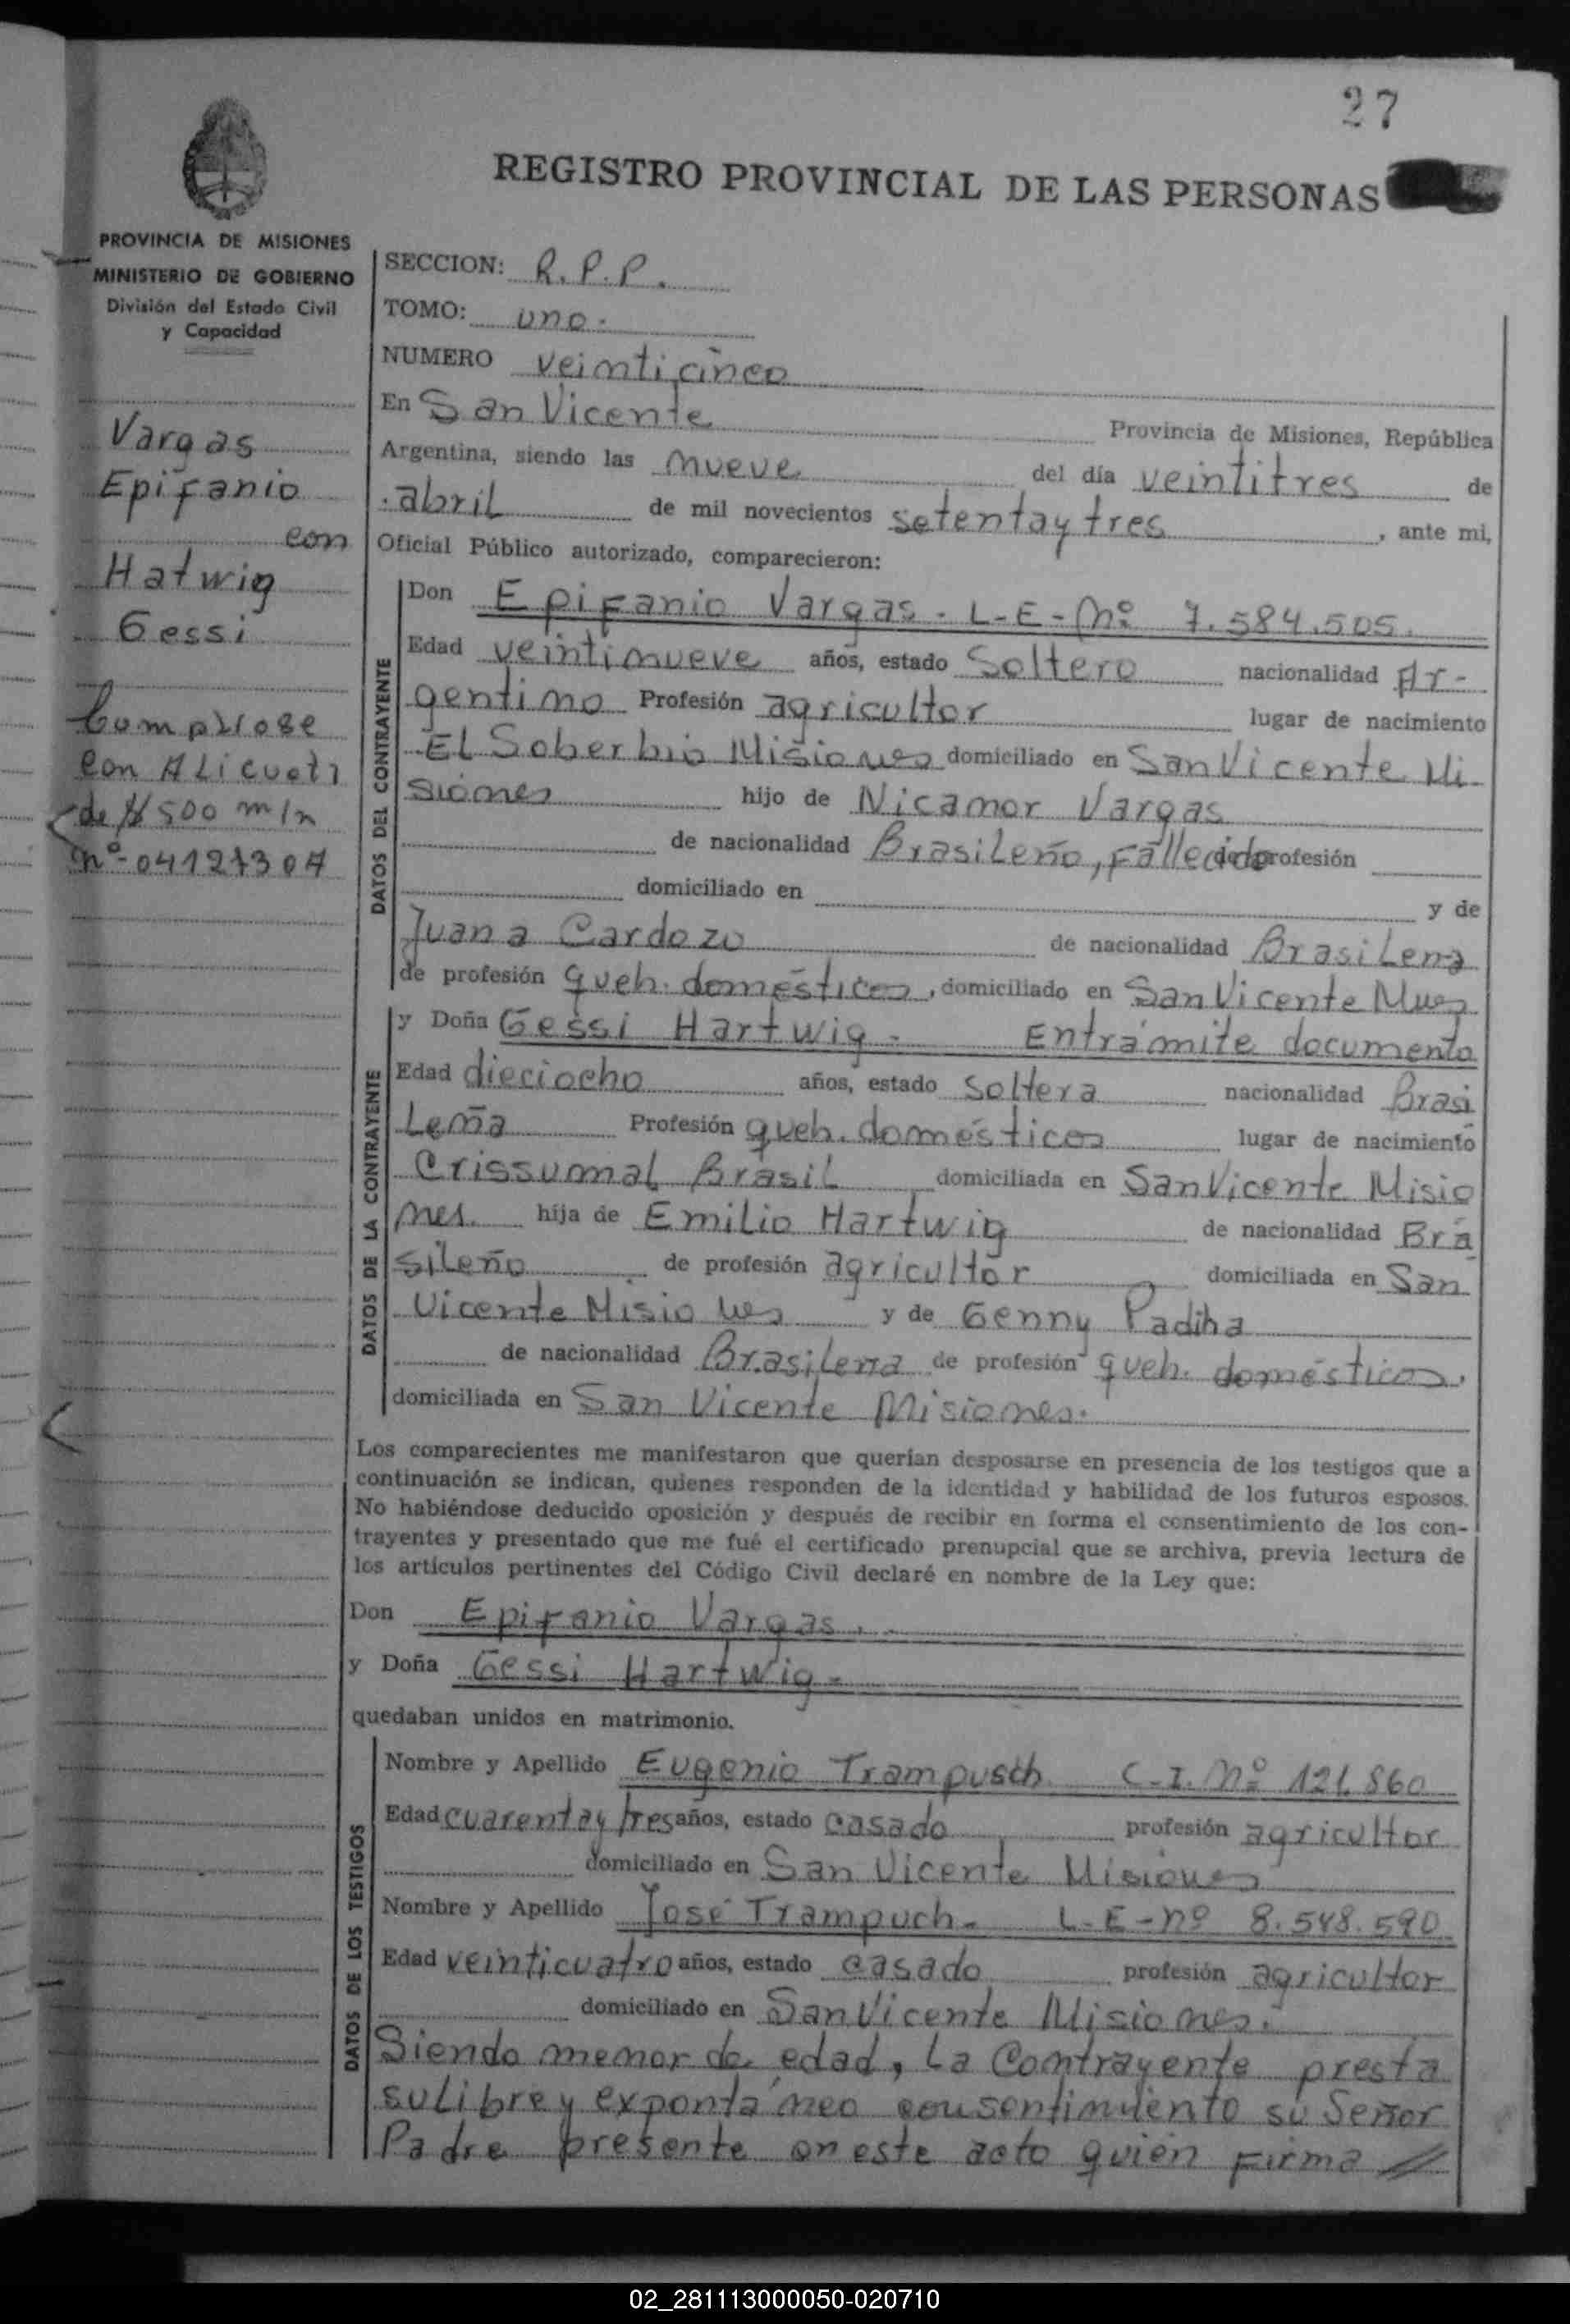 27
REGISTRO PROVINCIAL DE LAS PERSONAS
PROVINCIA DE MISIONES
MINISTERIO DE GOBIERNO
División del Estado Civil
y Capacidad
Vargas
Epifanio
con
Hatwig
Gessi
con Alicuoti
de $ 500 m/n
SECCION: R.P.P.
TOMO: uno.
NUMERO veinticinco
En San Vicente Provincia de Misiones, República
Argentina, siendo las nueve del día veintitres de
abril de mil novecientos setenta y tres, ante mi,
Oficial Público autorizado, comparecieron:
DATOS DEL CONTRAYENTE
Don Epifanio Vargas. L-E-Nº 7.584.505.
Edad veintinueve años, estado Soltero nacionalidad Ar-
gentino Profesión agricultor lugar de nacimiento
El Soberbio Misiones domiciliado en San Vicente Mi-
siones hijo de Nicanor Vargas
de nacionalidad Brasileño, Fallecido de profesión
domiciliado en y de
Juana Cardozo de nacionalidad Brasileña
de profesión queh. domésticos, domiciliado en San Vicente Mnes
DATOS DE LA CONTRAYENTE
y Doña Gessi Hartwig - En trámite documento
Edad dieciocho años, estado Soltera nacionalidad Brasi
Leña Profesión queh. domésticos lugar de nacimiento
Crissumal Brasil domiciliada en San Vicente Misio
nes. hija de Emilio Hartwig de nacionalidad Bra
sileño de profesión agricultor domiciliada en San
Vicente Misiones y de Genny Padiha
de nacionalidad Brasileña de profesión queh. domésticos.
domiciliada en San Vicente Misiones.
Los comparecientes me manifestaron que querían desposarse en presencia de los testigos que a
continuación se indican, quienes responden de la identidad y habilidad de los futuros esposos.
No habiéndose deducido oposición y después de recibir en forma el consentimiento de los con-
trayentes y presentado que me fué el certificado prenupcial que se archiva, previa lectura de
los artículos pertinentes del Código Civil declaré en nombre de la Ley que:
Don Epifanio Vargas.
y Doña Gessi Hartwig -
quedaban unidos en matrimonio.
DATOS DE LOS TESTIGOS
Nombre y Apellido Eugenio Trampusch C.I. Nº 121.860
Edad cuarenta y tres años, estado casado profesión agricultor
domiciliado en San Vicente Misiones
Nombre y Apellido José Trampuch - L-E-nº 8.548.590
Edad veinticuatro años, estado casado profesión agricultor
domiciliado en San Vicente Misiones.
Siendo menor de edad, La Contrayente presta
su libre y expontáneo consentimiento su Señor
Padre presente en este acto quién Firma
02_281113000050-020710